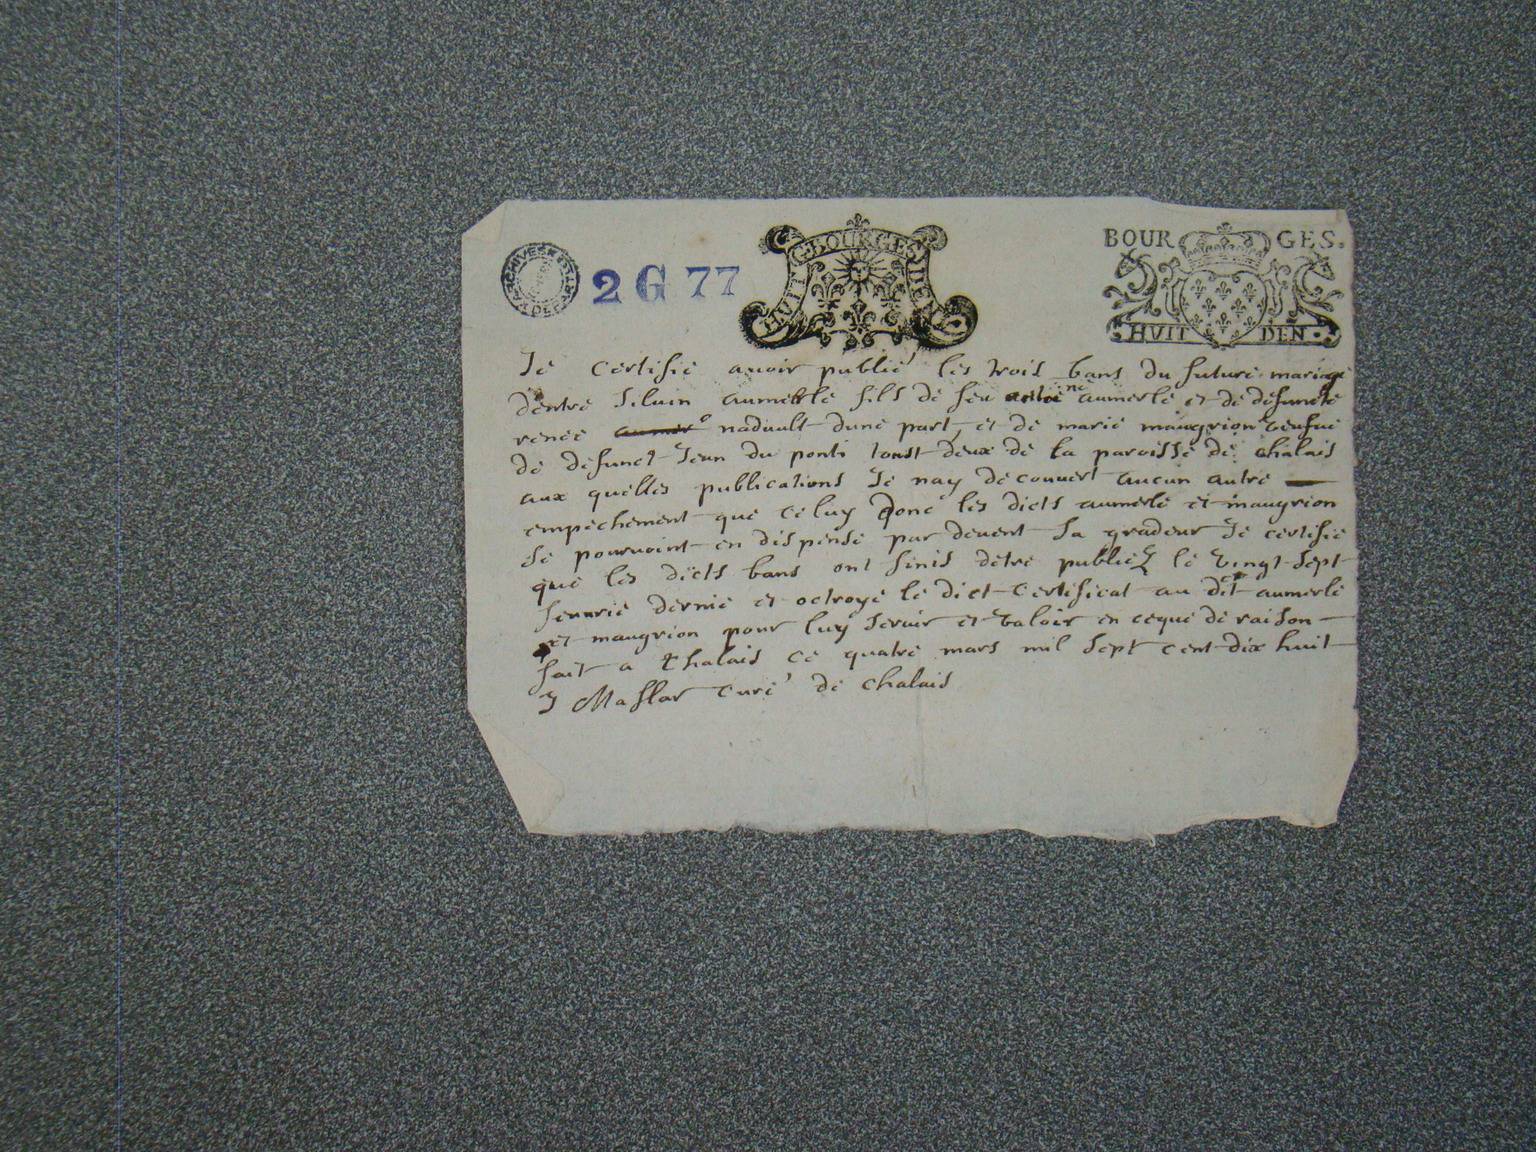 2 G 77
HUIT BOURGES DEN
BOUR GES.
HUIT DEN
Je certifie avoir publié les trois bans du future mariage
dentre Silvin aumerle fils de feu aumerle et de defuncte
renée nadault dune part, et de marie maugrion veufue
de defunct Jean du ponti toust deux de la paroisse de chalais
aux quelles publications Je nay decouvert aucun autre
empechement que celuy donc les dicts aumerle et maugrion
se pouruoint en dispense par devent Sa gradeur Je certifie
que les dicts bans ont finis detre publiez le vingt-sept
feuurie dernie et octroye le dict certificat au dit aumerle
et maugrion pour luy servir et valoir en ceque de raison
fait a Chalais ce quatre mars mil sept cent dix huit
curé de chalais